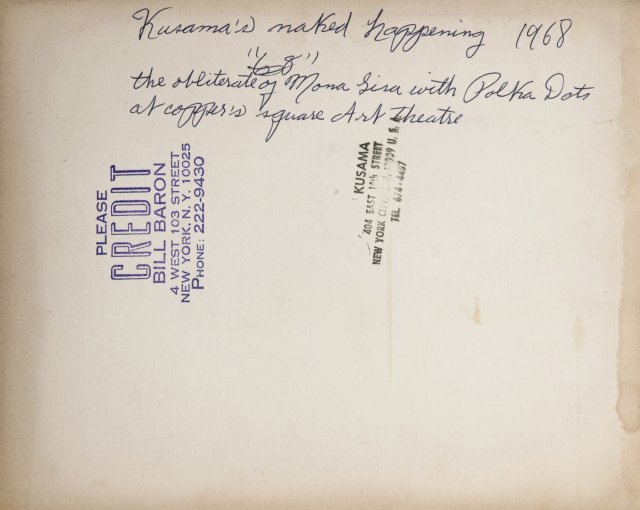 Kusama's naked happening 1968
"68"
the obliterate of Mona Lisa with Polka Dots
at copper's square Art theatre
PLEASE
CREDIT
BILL BARON
4 WEST 103 STREET
NEW YORK, N. Y. 10025
PHONE: 222-9430
KUSAMA
404 EAST 14th STREET
NEW YORK CITY, 10009 U. S. A.
TEL 674-4457